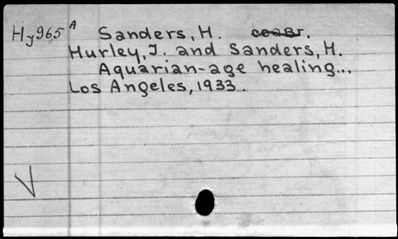 Hy965 A Sanders, H. coaBT.
Hurley, J. and Sanders, H.
Aquarian-age healing...
Los Angeles, 1933.